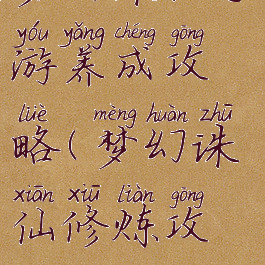 yóu yǎng chéng gōng
游养成攻
lüè mèng huàn zhū
略(梦幻诛
xiān xiū liàn gōng
仙修炼攻